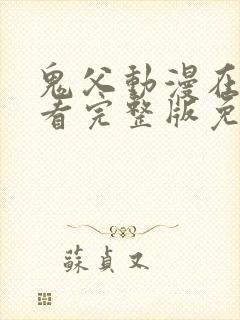 鬼父動漫在
看完整版免
蘇貞又